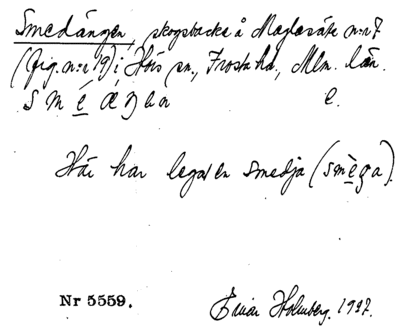 Smedängen, skogsbacke å Maglasäte n:r 7
(fig. n:r 19) i Hörs sn., Frosta hd, Mlm. län.
s m é æŋen e.
Här har legat en smedja (smèga).
Nr 5559. Einar Holmberg. 1937.